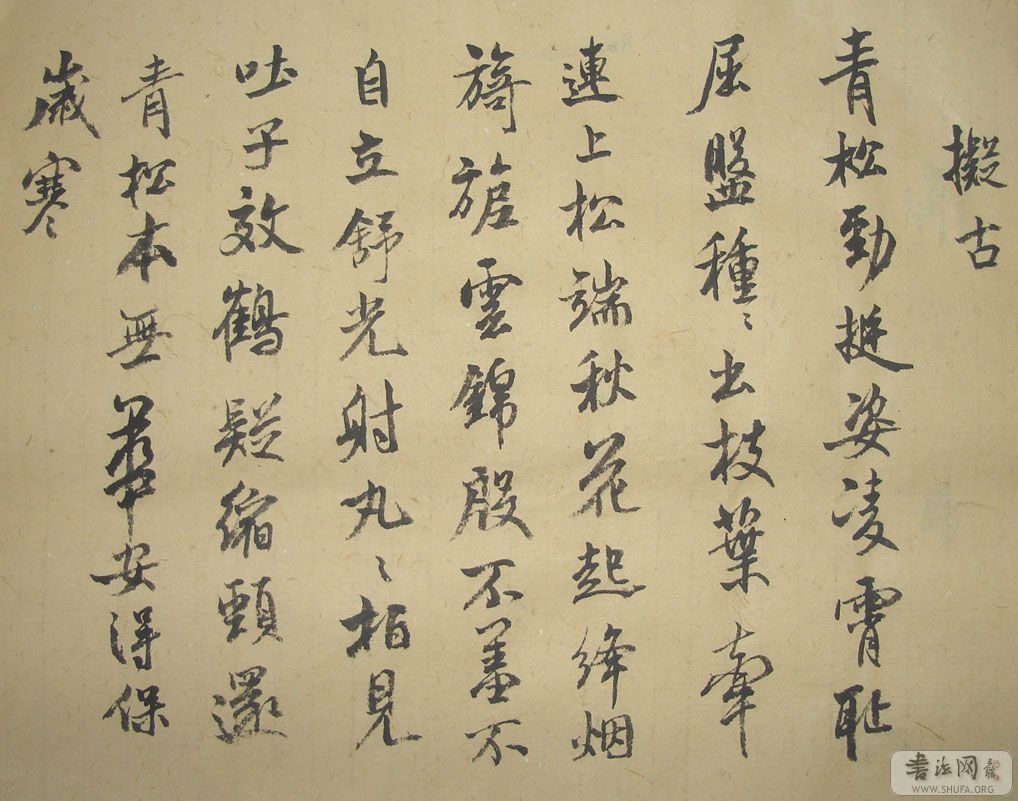 擬古
青松勁挺姿凌霄耻
屈盤種〻出枝葉牽
連上松端秋花起絳烟
旖旎雲錦殷不羞不
自立舒光射丸〻栢見
吐子效鶴疑縮頸還
青松本無華安得保
歲寒
书法网
WWW.SHUFA.ORG